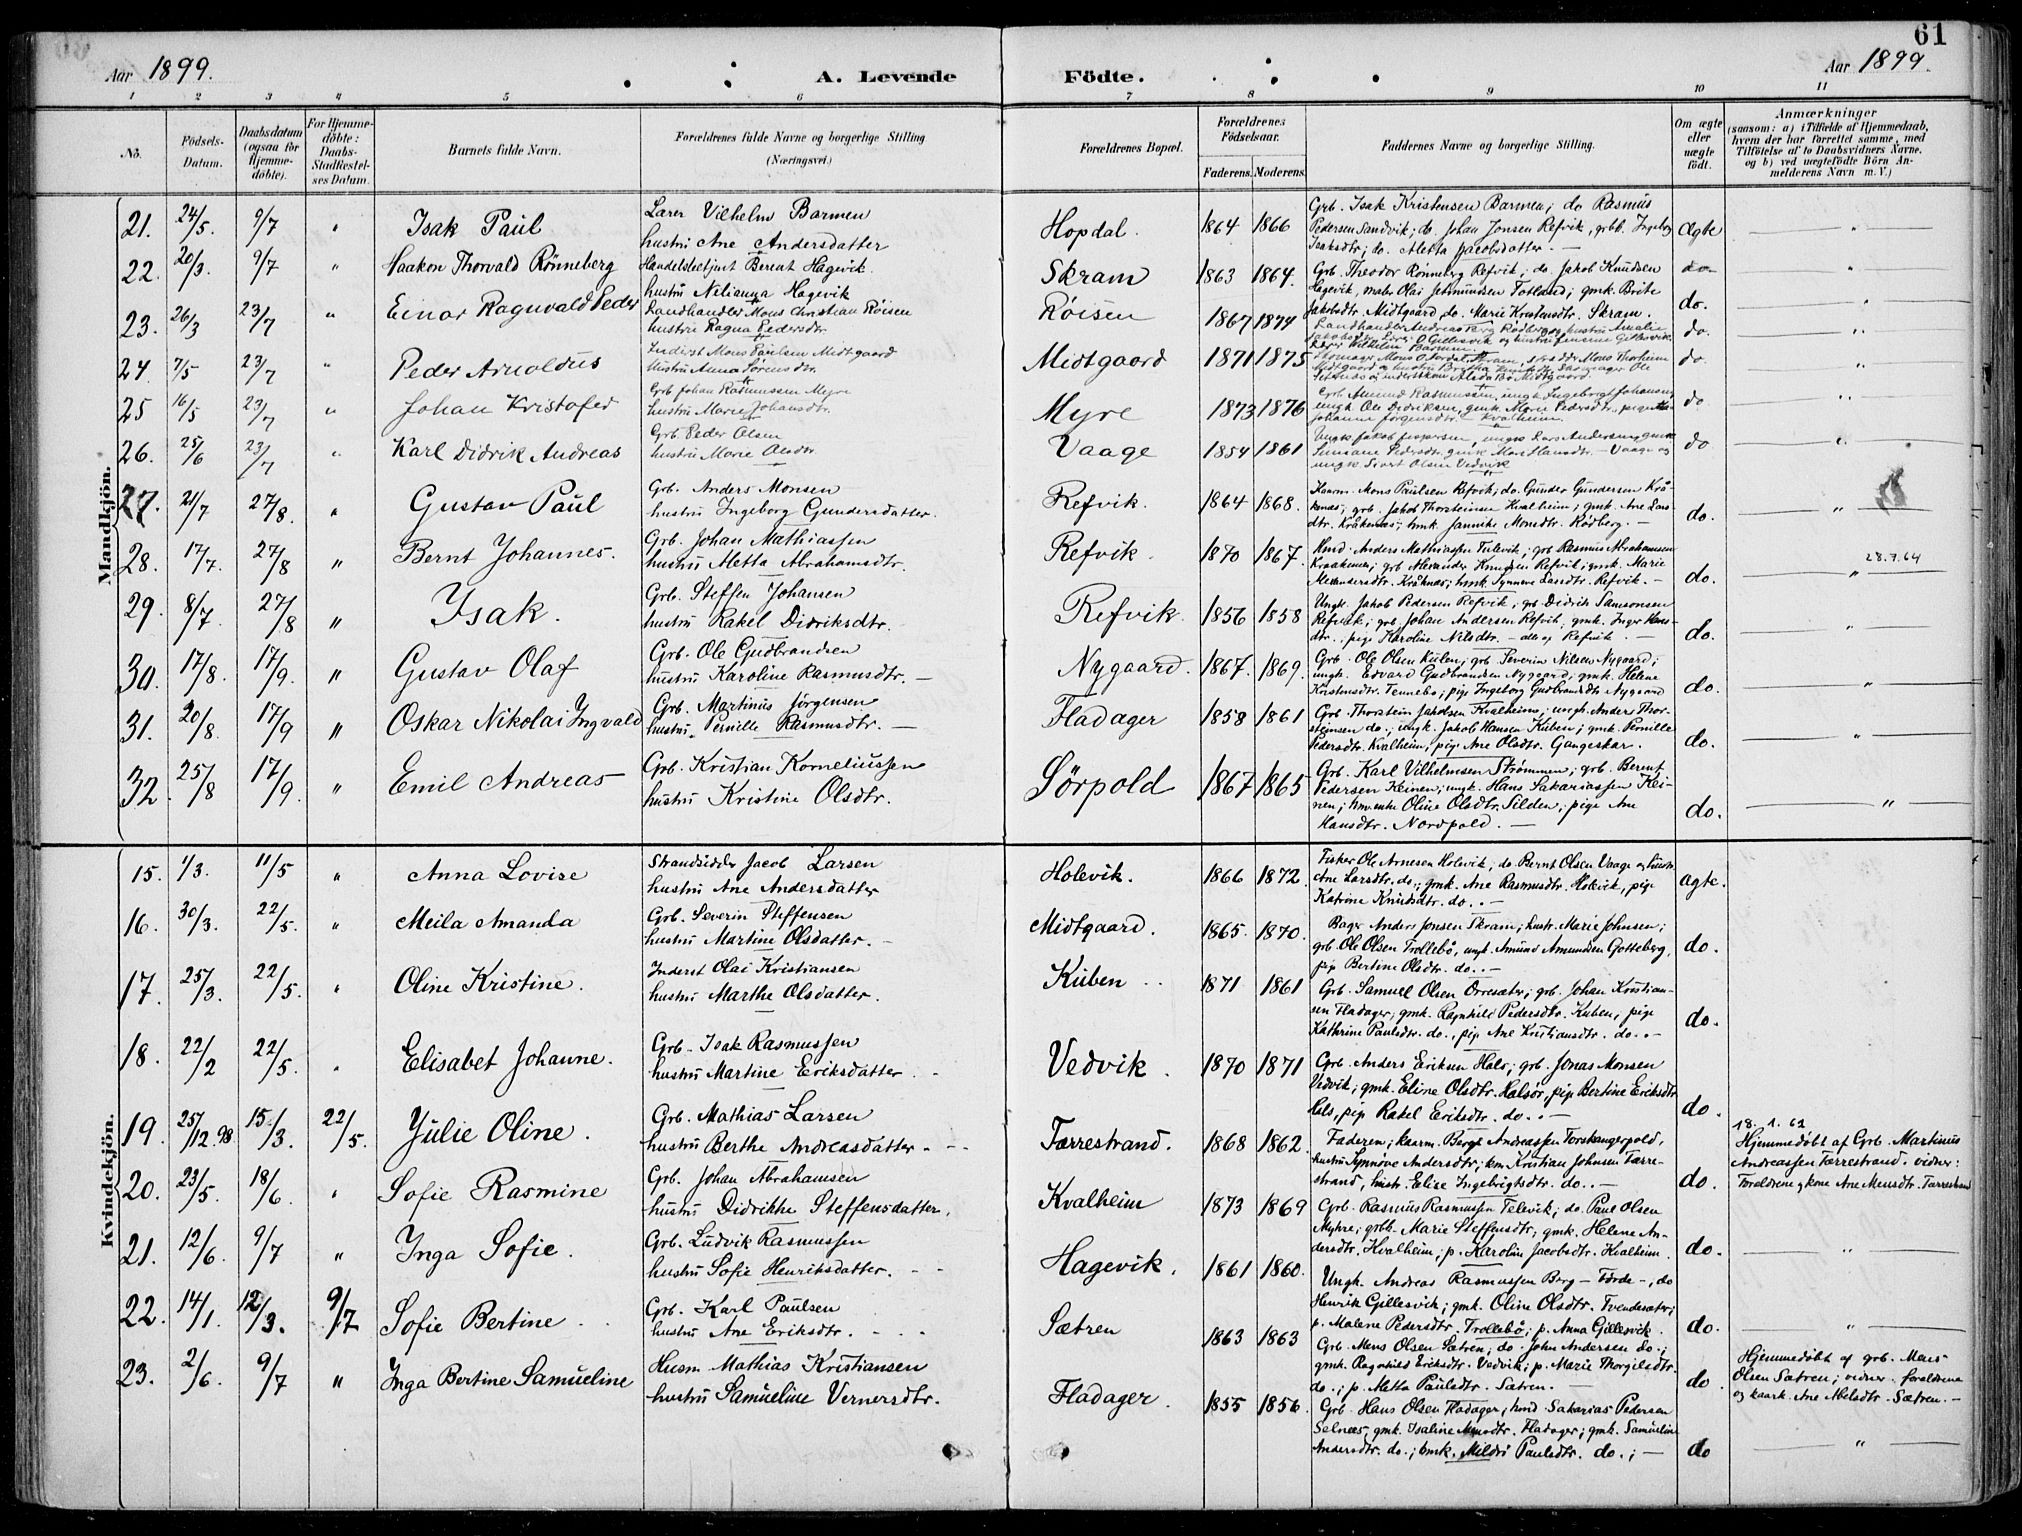 61
Aar 1899.
A. Levende Fødte.
Aar 1899.
1 2 3 4 5 6 7 8 9 10 11
No.
Fødsels-Datum.
Daabsdatum (ogsaa for Hjemme-døbte).
For Hjemme-døbte: Daabs-Stadfæstel-ses Datum.
Barnets fulde Navn.
Forældrenes fulde Navne og borgerlige Stilling (Næringsvei.)
Forældrenes Bopæl.
Forældrenes Fødselsaar. Faderens. Moderens.
Faddernes Navne og borgerlige Stilling.
Om ægte eller uægte født.
Anmærkninger (saasom: a) i Tilfælde af Hjemmedaab, hvem der har forrettet samme, med Tilføielse af to Daabsvidners Navne, og b) ved uægtefødte Børn An-melderens Navn m. V.)
Mandkjøn.
21. 24/5. 9/7 " Isak Paul
Lærer Vilhelm Barmen
hustru Ane Andersdatter
Hopdal. 1864 1866
Grb. Isak Kristensen Barmen; do Rasmus
Pedersen Sandvik; do. Johan Jonsen Refvik, grbk. Ingeborg
Isaksdtr; do. Aletta Jacobsdatter. —
Ægte
22. 20/3. 9/7 " Haakon Thorvald Rønneberg
Handelsbetjent Berent Hagevik.
hustru Nilianna Hagevik
Skram 1863 1864.
Grb. Theodor Rønneberg Refvik; do. Jakob Knudsen
Hagevik, maler Olai Jetmundsen Totland; gmk. Brite
Jakobsdtr. Midtgaard, do. Marie Kristensdtr. Skram.
do.
23. 26/3 23/7 " Einar Ragnvald Peder
Landhandler Mons Christian Røisen
hustru Ragna Pedersdtr
Røisen 1867 1874
do.
24. 7/5 23/7 " Peder Arnoldus
Inderst Mons Paulsen Midtgaard
hustru Anna Sørensdtr
Midtgaard 1871 1875
do
25 16/5 23/7 " Johan Kristofer
Grb Johan Rasmussen Myre
hustru Marie Johansdtr.
Myre 1873 1876
Grb Amund Rasmussen, ungk Ingebrigt Johansen,
ungk Ole Didriksen, gmk. Marie Pedersdtr, pige
Johanne Jørgensdtr — Kvalheim.
do
26. 25/6 23/7 Karl Didrik Andreas
Grb Peder Olsen
hustru Marie Olsdtr
Vaage 1854 1861
Ungk Jakob Jespersen, ungk Lars Andersen, gmk
Simiane Pedersdtr, gmk Mari Hansdtr. — Vaage og
ungk Sivert Olsen Vedvik
do
27. 21/7 27/8. " Gustav Paul
Grb. Anders Monsen
hustru Ingeborg Gundersdatter.
Refvik. 1864 1868.
Kaarm. Mons Paulsen Refvik; do. Gunder Gundersen Krå-
kenes; grb. Jakob Thorsteinsen Kvalheim; gmk. Ane Lars-
dtr. Kråkenes; hmk. Jannike Monsdtr. Rødberg. —
do.
28. 17/7. 27/8 " Bernt Johannes.
Grb. Johan Mathiassen
hustru Aletta Abrahamsdtr.
Refvik. 1870 1867.
Hmd. Anders Mathiassen Tulevik; grb Rasmus Abrahamsen
Kraakenes; grb Alexander Knudsen Refvik; gmk. Marie
Alexandersdtr. Kråknæs; hmk. Synneve Larsdtr. Refvik. —
do. 28.7.64
29. 8/7 27/8 " Isak.
Grb. Steffen Johansen
hustru Rakel Didriksdtr.
Refvik. 1856 1858
Ungk. Jakob Pedersen Refvik; grb. Didrik Samsonsen
Refvik; grb. Johan Andersen Refvik, gmk. Inger Hans-
dtr., pige Karoline Nilsdtr. — alle af Refvik. —
do.
30. 17/8. 17/9. " Gustav Olaf
Grb. Ole Gudbrandsen
hustru Karoline Rasmusdtr. —
Nygaard. 1867. 1869.
Grb. Ole Olsen Kulen; grb Severin Nilsen Nygaard;
ungk. Edvard Gudbrandsen Nygaard; gmk. Helene
Kristensdtr. Tennebø; pige Ingeborg Gudbrandsdtr Nygaard
do.
31. 20/8. 17/9 " Oskar Nikolai Ingvald
Grb. Martinus Jørgensen
hustru Pernille Rasmusdtr. —
Fladager 1858 1861
Grb. Thorstein Jakobsen Kvalheim; ungk. Anders Thor-
steinsen do.; ungk. Jakob Hansen Kuben; gmk. Pernille
Pedersdtr. Kvalheim, pige Ane Olsdtr. Gangeskar.
do.
32. 25/8 17/9. " Emil Andreas
Grb. Kristian Korneliussen
hustru Kristine Olsdtr.
Sørpold 1867 1865
Grb. Karl Vilhelmsen Strømmen; grb. Berent
Pedersen Keinen; ungk. Hans Sakariassen Kei-
nen; hmenke Oline Olsdtr. Silden; pige Ane
Hansdtr. Nordpold. —
do.
Kvindekjøn.
15. 1/3. 11/5 " Anna Lovise
Strandsidder Jacob Larsen
hustru Ane Andersdatter
Holevik. 1866 1872.
Fisker Ole Arnesen Holevik; do. Bernt Olsen Vaage og hustr
Ane Larsdtr. do.; gmk. Ane Rasmusdtr. Holevik, pige
Katrine Knudsdtr. do. . —
ægte.
16. 30/3. 22/5. " Meila Amanda
Grb. Severin Steffensen
hustru Martine Olsdatter. —
Midtgaard. 1865. 1870.
Bager Anders Jonsen Skram; hustr. Marie Johnsen;
grb. Ole Olsen Trollebø, ungk. Amund Amundsen Gotteberg,
pige Bertine Olsdtr. do. . —
do.
17. 25/3. 22/5. " Oline Kristine.
Inderst Olai Kristiansen
hustru Marthe Olsdatter.
Kuben 1871 1861
Grb. Samuel Olsen Orresæter; grb. Johan Kristian-
sen Fladager; gmk. Ragnhild Pedersdtr. Kuben; pige
Kathrine Paulsdtr. do., pige Ane Kristiansdtr. do. . —
do.
18. 22/2 22/5. " Elisabet Johanne.
Grb. Isak Rasmussen
hustru Martine Eriksdatter
Vedvik. 1870 1871
Grb. Anders Eriksen Hals; grb. Jonas Monsen
Vedvik; gmk. Eline Olsdtr. Halsør, pige Bertine Eriksdtr
Hals, pige Rakel Eriksdtr. do. . —
do.
19. 25/12.98. 15/3. 22/5. Julie Oline.
Grb. Mathias Larsen
hustru Berthe Andreasdatter.
Færrestrand. 1868 1862.
Faderen; kaarm. Bergt Andreassen Torskangerpold,
hustru Synnøve Andersdtr; Kristian Johnsen Færre-
strand, hustr. Elise Ingebrigtsdtr. do. . —
do.
18.1.62
Hjemmedøbt af Grb. Martinus
Andreassen Færrestrand. vidner:
Forældrene og kone Ane Monsdtr. Færrestrand
20. 23/5. 18/6. " Sofie Rasmine
Grb. Johan Abrahamsen
hustru Didrikke Steffensdatter.
Kvalheim 1873 1869
Grb. Rasmus Rasmussen Televik; do. Paul Olsen
Myhre; grbk. Marie Steffensdtr; gmk. Helene An-
dersdtr. Kvalheim; p. Karolin Jacobsdtr. Kvalheim.
do.
21. 12/6. 9/7 " Inga Sofie.
Grb. Ludvik Rasmussen
hustru Sofie Henriksdatter.
Hagevik. 1861 1860.
Ungk. Andreas Rasmussen Berg — Førde —, do
Henrik Gillesvik; gmk. Oline Olsdtr. Tvendesæter;
p. Malene Pedersdtr. Trollebø; p. Anna Gillesvik.
do.
22. 14/1. 12/3. 9/7 Sofie Bertine
Grb. Karl Paulsen
hustru Ane Eriksdtr.
Sætren 1863 1863
Grb. Mons Olsen Sætren; do. John Andersen do.;
gmk. Ragnhild Eriksdtr. Vedvik; p. Marie Thorgilsdtr.
do.; p. Metta Paulsdtr. Sætren. —
do
Hjemmedøbt af grb. Mons
Olsen Sætren; vidner. forældrene
og kaark. Ane Abelsdtr. Sætren. —
23. 2/6. 9/7 " Inga Bertine Samueline
Husm Mathias Kristiansen
hustru Samueline Vernersdtr.
Fladager. 1855 1856.
Grb. Hans Olsen Fladager; hmd. Sakarias Pedersen
Selnees, gmk. Isaline Monsdtr. Fladager; gmk. Samueline
Andersdtr. do.; hmk. Mildri Paulsdtr. do.; —
do